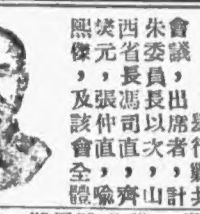 會議，出席者，計
朱委員長以次，山
西省長馮司直，齊
燮元，張仲直，喻
熙傑，及該會全體